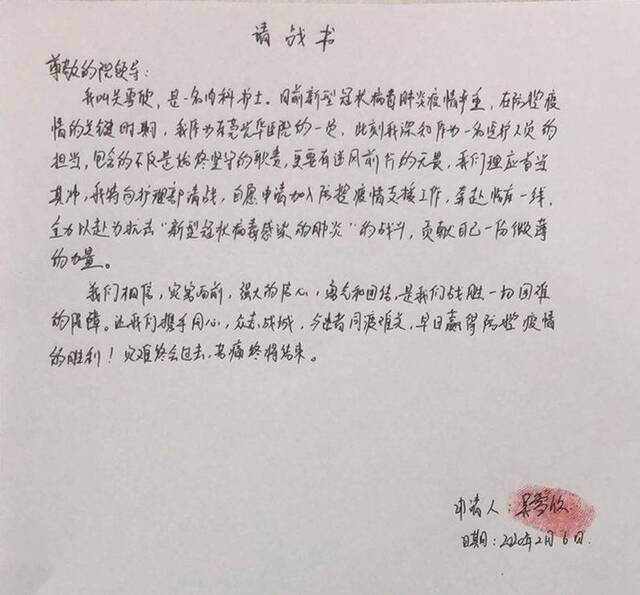 请战书
尊敬的院领导:
我叫吴雪欣,是一名内科护士。目前新型冠状病毒肺炎疫情严重,在防控疫
情的关键时期,我作为东莞光华医院的一员,此刻我深知作为一名医护人员的
担当,包含的不仅是始终坚守的职责,更要有逆风前行的无畏,我们理应首当
其冲,我特向护理部请战,自愿申请加入防控疫情支援工作,奔赴临床一线,
全力以赴为抗击“新型冠状病毒感染的肺炎”的战斗,贡献自己一份微薄
的力量。
我们相信,灾害面前,强大的信心,勇气和团结,是我们战胜一切困难
的保障。让我们携手同心,众志成城,与患者同渡难关,早日赢得防控疫情
的胜利!灾难终会过去,苦痛终将结束。
申请人:吴雪欣
日期:2020年2月6日.